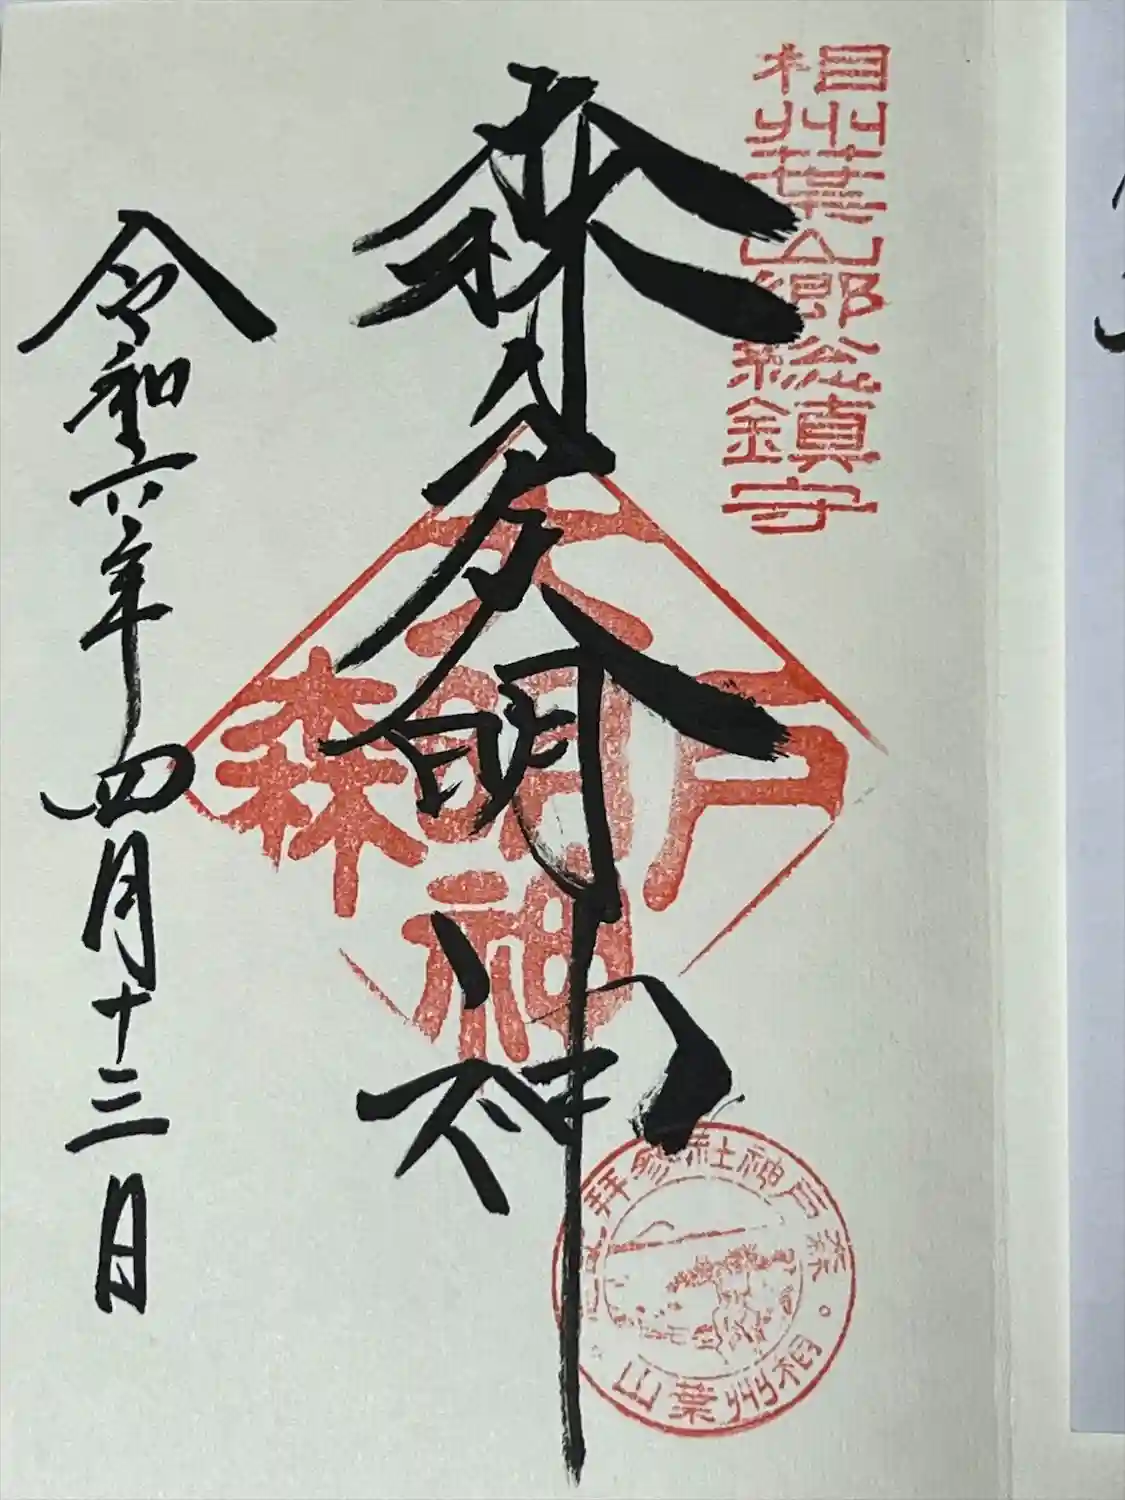 相州葉山郷総鎮守
森戸大明神
森戸大明神
森戸神社参拝記念。
相州葉山。
令和六年四月十三日